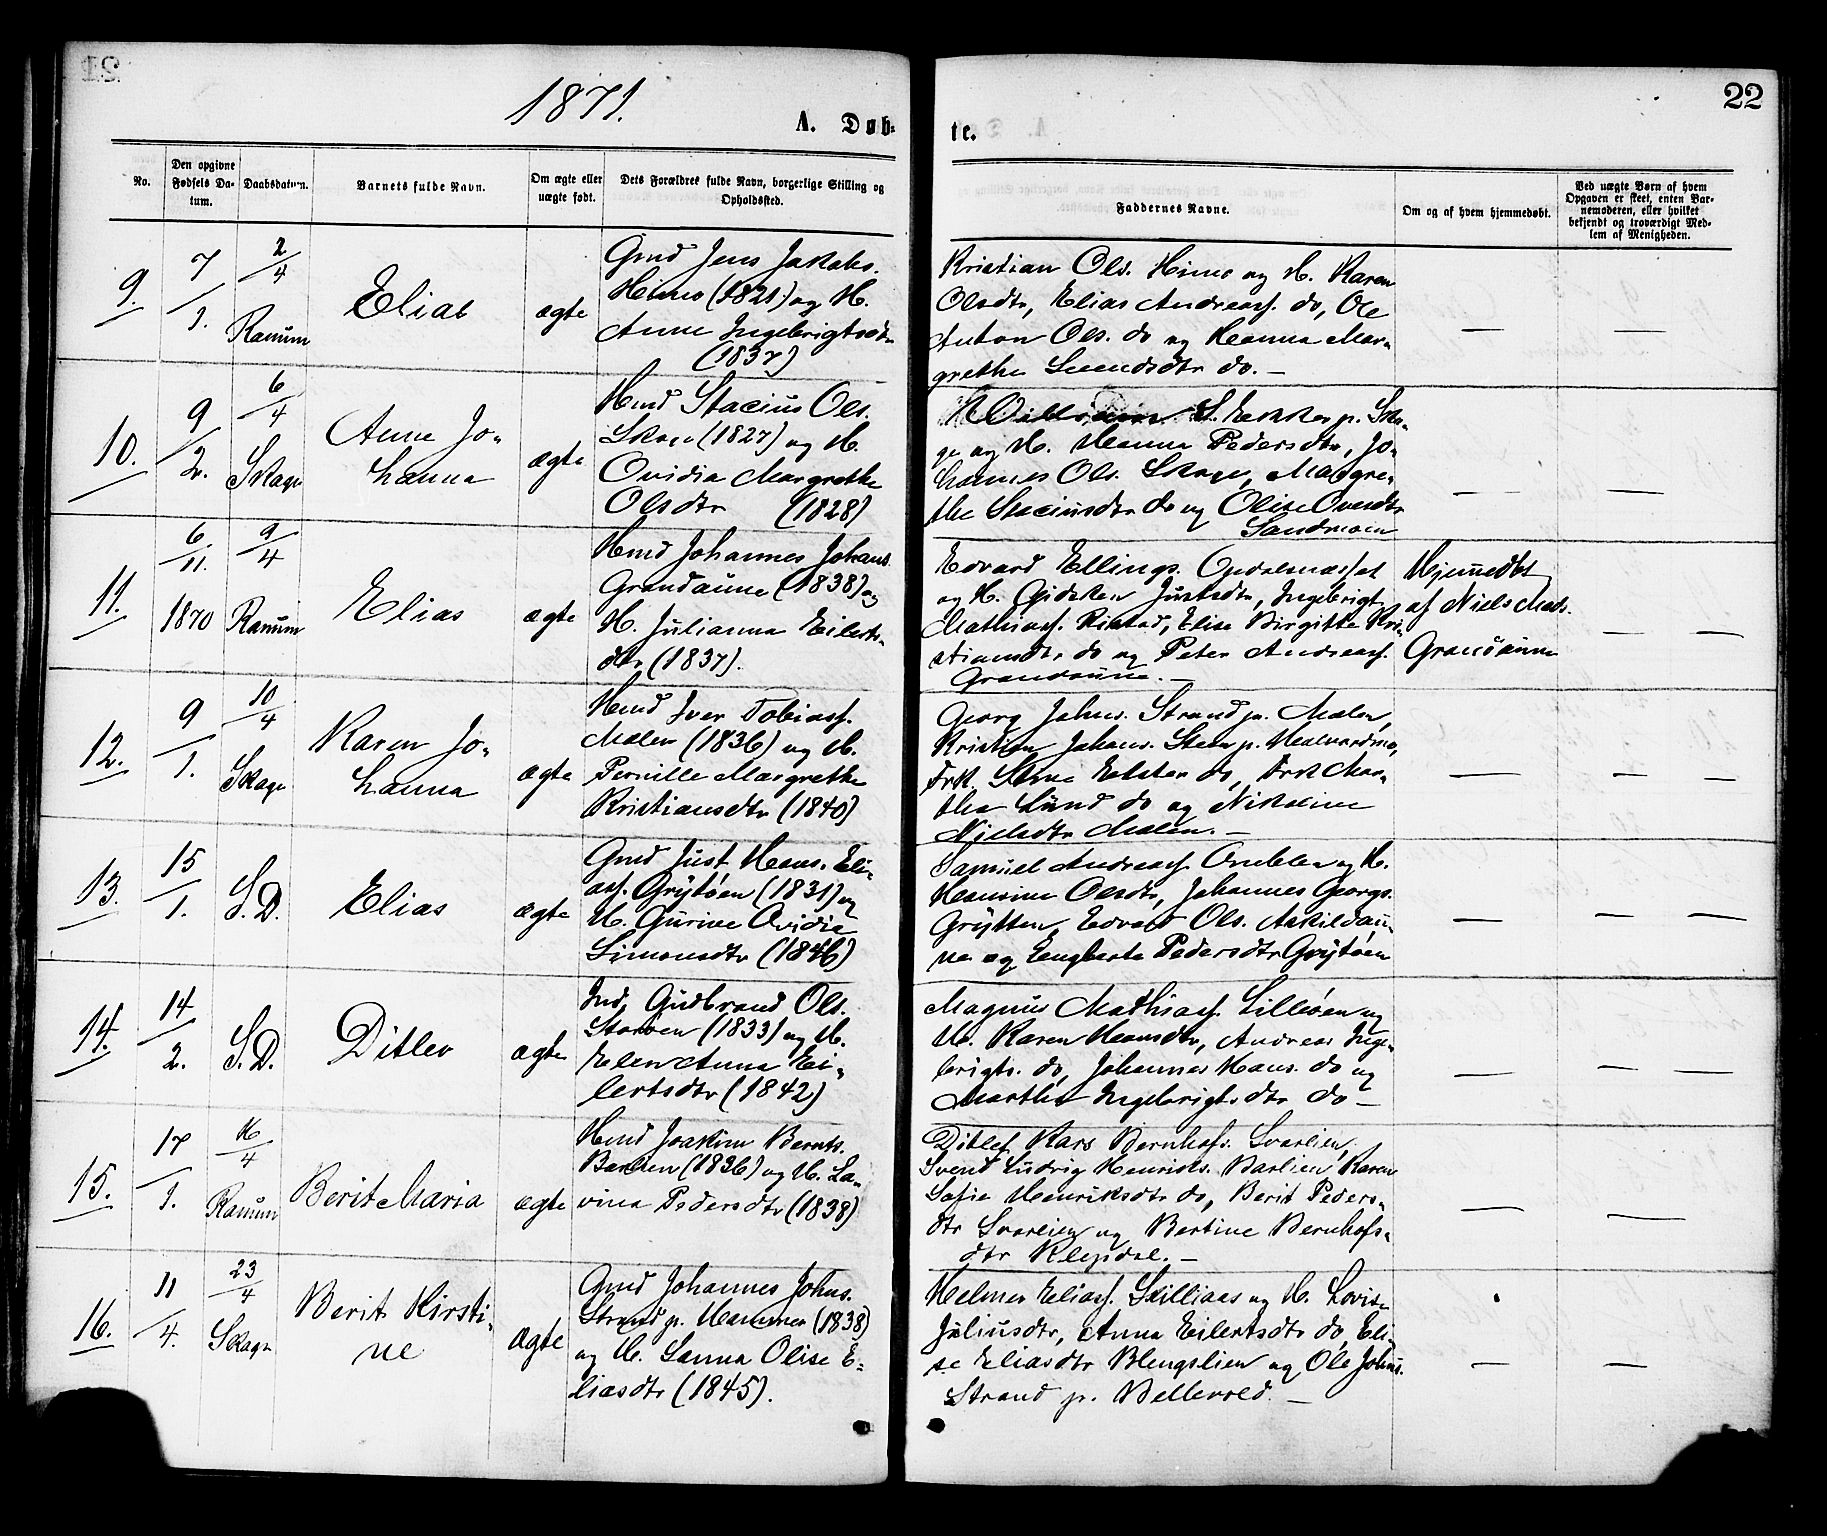 1871.
22
A. Døb-
te.
No.
Den opgivne Fødsels Da-tum.
Daabsdatum.
Barnets fulde Navn.
Om ægte eller uægte født.
Dets Forældres fulde Navn, borgerlige Stilling og Opholdssted.
Faddernes Navne.
Om og af hvem hjemmedøbt.
Ved uægte Børn af hvem Opgaven er skeet, enten Bar-nemoderen, eller hvilket bekjendt og troværdigt Med-lem af Menigheden.
9.
7/1.
2/4
Ranum
Elias
ægte
Grnd Jens Jakobs.
Himo (1821) og H.
Anne Ingebrigtsdtr
(1837)
Kristian Ols. Himo og H. Karen
Olsdtr, Elias Andreass. do, Ole
Anton Ols. do og Hanna Mar-
grethe Svendsdtr do. —
10.
9/2.
6/4
Skage
Anne Jo-
hanna
ægte
Hmd Stacius Ols.
Skage (1827) og H.
Ovidia Margrethe
Olsdtr (1828)
S. Hekker p. Ska-
ge og H. Hanna Pedersdtr, Jo-
hannes Ols. Skage, Margre-
the Staciusdtr do og Olise Ovesdtr
Sandmoen
11.
6/11.
1870
9/4
Ranum
Elias
ægte
Hmd Johannes Johans.
Grandaune (1838) og
H. Julianna Eilerts-
dtr (1837).
Edvard Ellings. Opdalsnæsset
og H. Gidsken Justsdtr, Ingebrigt
Mathiass. Risstad, Elise Birgitte Kri-
stiansdtr do og Peter Andreass.
Grandaune. —
Hjemmedbt
af Niels Mads.
Grandaune
12.
9/1.
10/4
Skage
Karen Jo-
hanna
ægte
Hmd Iver Tobiass.
Malen (1836) og H.
Pernille Margrethe
Kristiansdtr (1840)
Georg Johns. Strand p. Malen,
Kristian Johans. Steen p. Halvardmo,
Frk Elster do, Frk Mar-
tha Lund do og Nikoline
Nielsdtr Malen. —
13.
15/1.
S. D.
Elias
ægte
Grnd Just Hans. Eli-
ass. Grytøen (1831) og
H. Gurine Ovidia
Simonsdtr (1846)
Samuel Andreass. Amblen og H.
Hansine Olsdtr, Johannes Georgs.
Grytten, Edvard Ols. Askildau-
ne og Engberte Pedersdtr Grytøen
14.
14/2.
S. D.
Ditlev
ægte
Ind. Gudbrand Ols.
Storøen (1833) og H.
Elen Anna Ei-
lertsdtr (1842)
Magnus Mathiass. Lilleøen og
H. Karen Hansdtr, Andreas Inge-
brigts. do, Johannes Hans. do og
Martha Ingebrigtsdtr do —
15.
17/1.
16/4
Ranum
Berit Maria
ægte
Hmd Joakim Bernts.
Barlien (1836) og H. La-
vina Pedersdtr (1838)
Ditlef Kars Bernhofs. Svarlien,
Svend Ludvig Henriks. Barlien, Karen
Sofie Henriksdtr do, Berit Peders-
dtr Svarlien og Bertine Bernhofs-
dtr Klepdal. —
16.
11/4.
23/4
Skage
Berit Kirsti-
ne
ægte
Grnd Johannes Johns.
Strand p. Hammer (1838)
og H. Sanna Olise E-
liasdtr (1845).
Helmer Eliass. Skilliaas og H. Lovise
Juliusdtr, Anna Eilertsdtr do, Eli-
se Eliasdtr Blengslien og Ole Johns.
Strand p. Bellevred. —